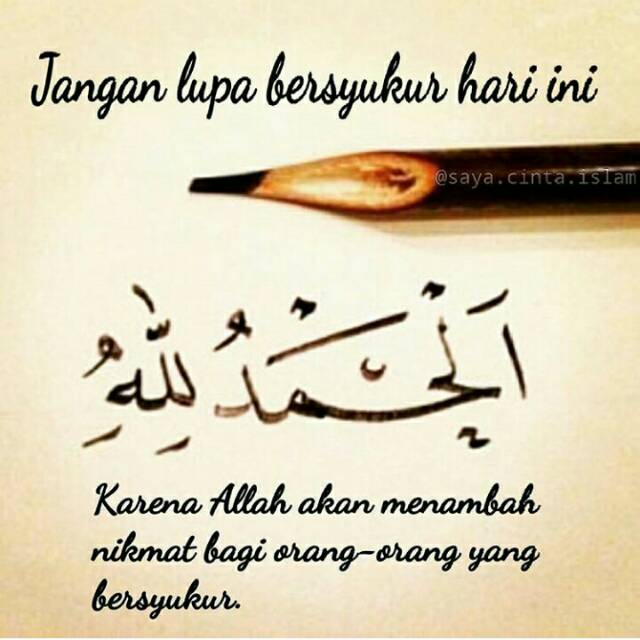 Jangan lupa bersyukur hari ini
@saya.cinta.islam
اَلْحَمْدُ لِلّٰهِ
Karena Allah akan menambah
nikmat bagi orang-orang yang
bersyukur.